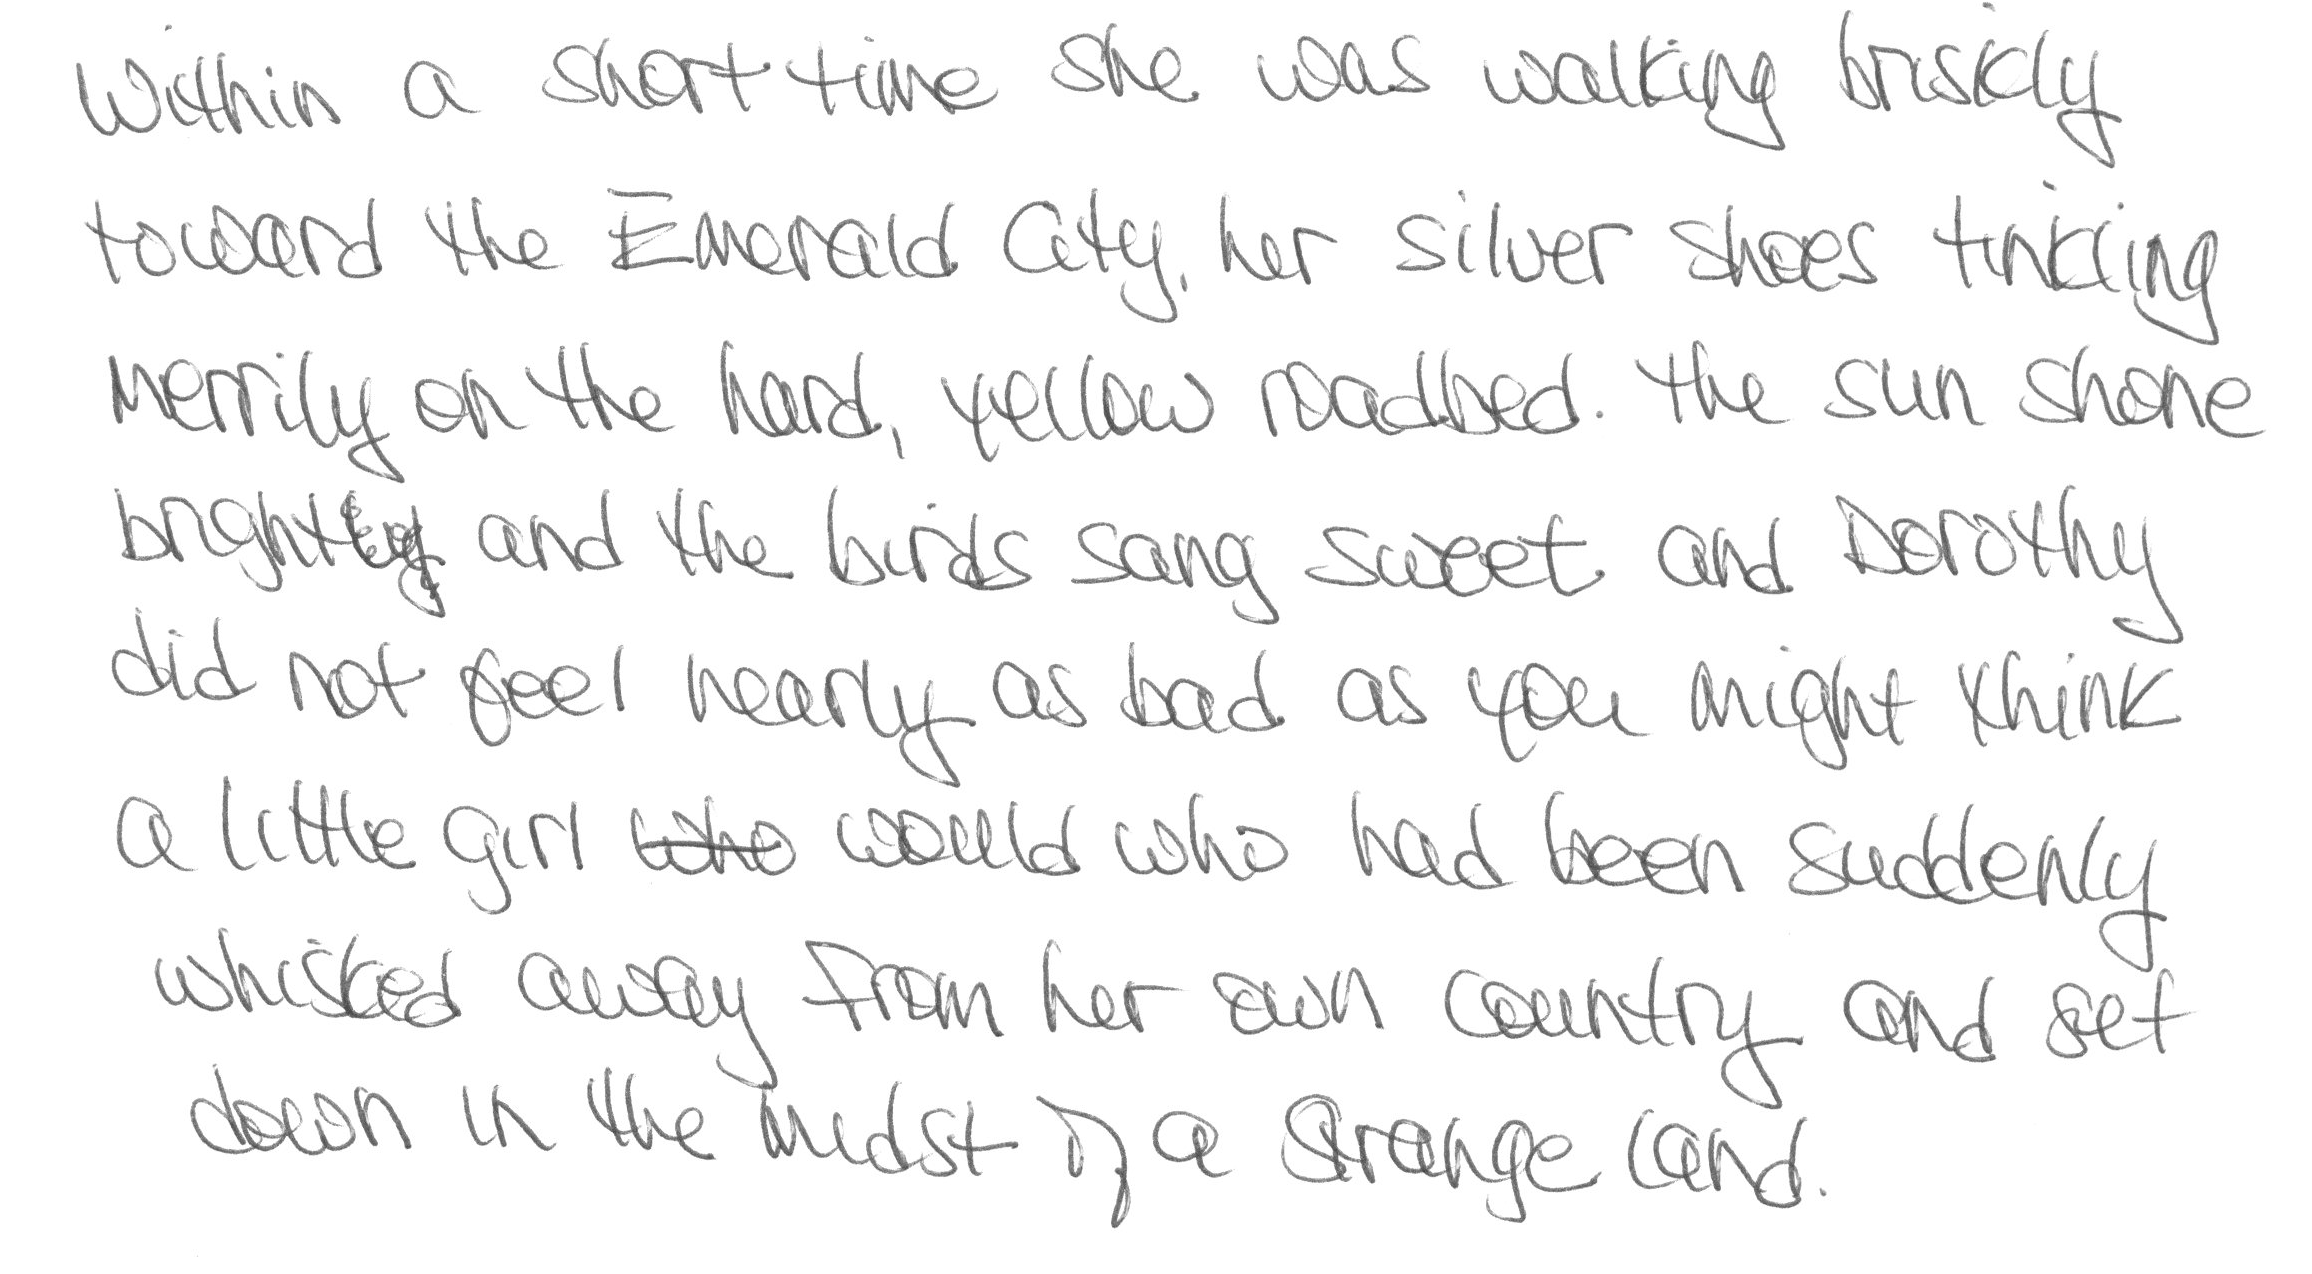 Within a short time she was walking briskly
toward the Emerald City, her silver shoes tinkling
merrily on the hard, yellow roadbed. The sun shone
brightly and the birds sang sweet and Dorothy
did not feel nearly as bad as you might think
a little girl ~~who~~ would who had been suddenly
whisked away from her own country and set
down in the midst of a strange land.